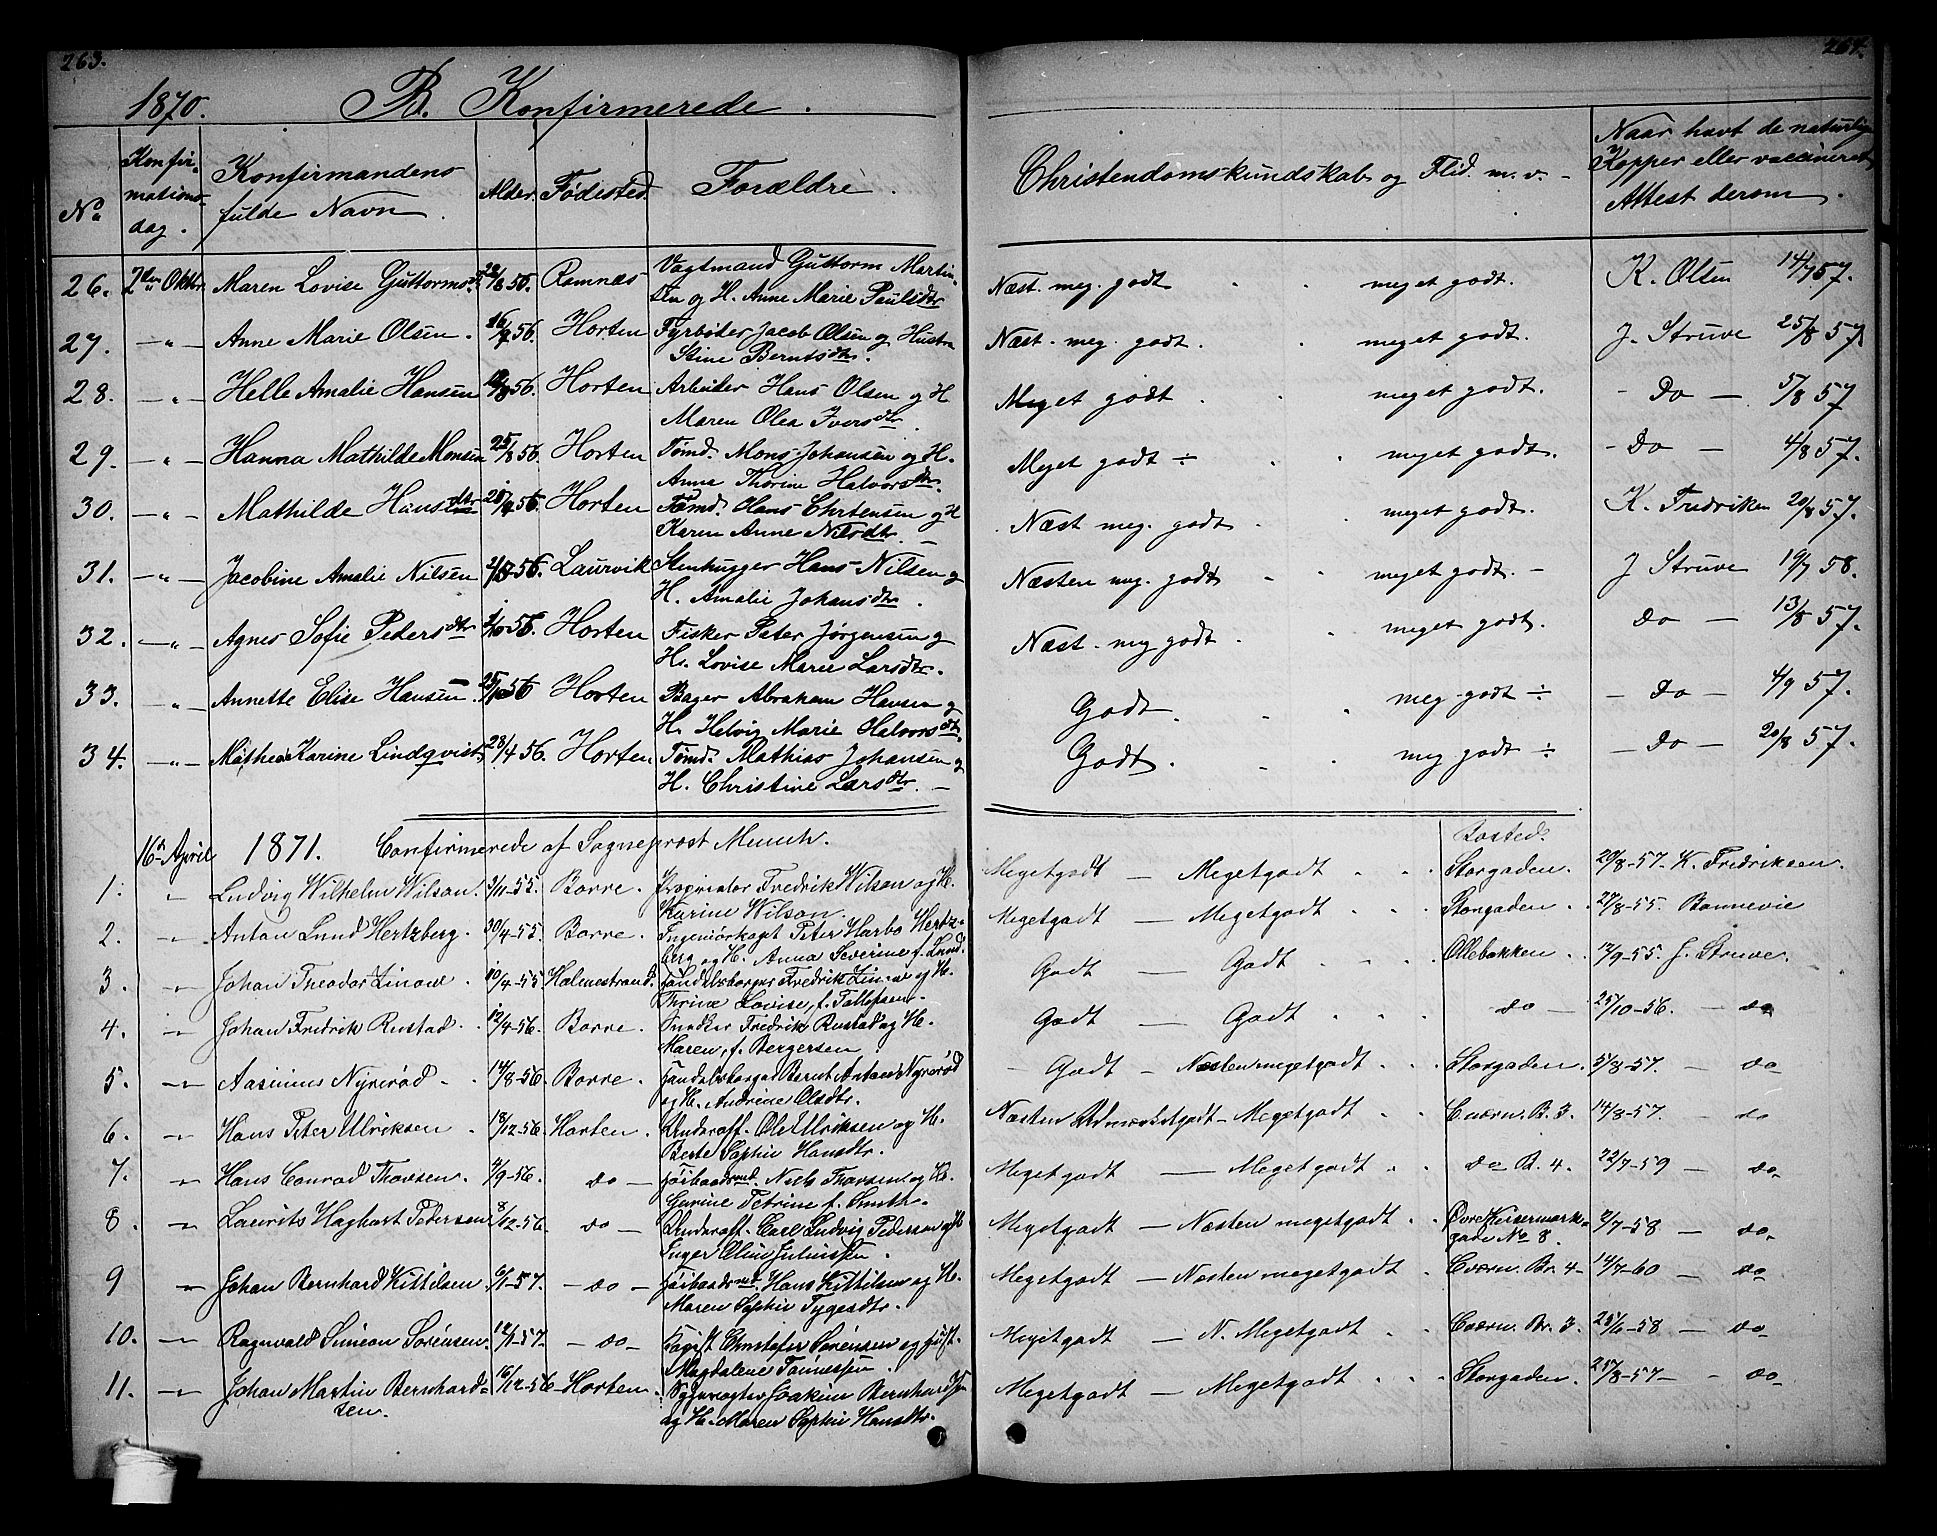 263.
264.
1870. B. Konfirmerede.
No
Konfir-
mations-
dag.
Konfirmandens
fulde Navn
Alder.
Fødested.
Forældre.
Christendomskundskab og Flid m. v.
Naar havt de naturlige
Kopper eller vaccineret
Attest derom.
26. 2den Oktbr. Maren Lovise Guttormsd. 56. Ramnæs Vagtmand Guttorm Martin-
sen og H. Anne Marie Paulsdtr Næst. meg. godt meget godt. K. Olsen 14/7 57.
27. -"- Anne Marie Olsen. 56. Horten Fyrbøder Jacob Olsen og Hustru
Stine Berntsdtr. Næst. meg. godt. meget godt. J. Struve 25/8 57
28. -"- Helle Amalie Hansen 56. Horten Arbeider Hans Olsen og H
Maren Olea Iversdtr. Meget godt meget godt. - Do - 5/8 57
29. -"- Hanna Mathilde Monsen 25/8 56. Horten Tømd. Mons Johansen og H.
Anna Thorine Halvorsdtr. Meget godt ÷ meget godt. - Do - 4/8 57.
30. -"- Mathilde Hansdtr 28/9 56. Horten Tømd. Hans Chrtensen og H
Karen Anne Nilsdtr. Næst meg. godt meget godt. K. Fredriksen 20/8 57.
31. -"- Jacobine Amalie Nilsen 56. Laurvik Stenhugger Hans Nilsen og
H. Amalie Johansdtr. Næsten meg. godt meget godt. - J Struve 19/7 58.
32. -"- Agnes Sofie Pedersdtr 56. Horten Fisker Peter Jørgensen og
H. Lovise Marie Larsdtr. Næst. meg godt. meget godt. Do - 13/8 57.
33. -"- Annette Elise Hansen. 25/10 56 Horten Bager Abraham Hansen og
H. Helvig Marie Halvorsdtr. Godt. meg godt ÷ - Do - 4/9 57.
34. -"- Mathea Karine Lindqvist 28/4 56. Horten Tømd. Mathias Johansen og
H. Christine Larsdtr. - Godt. meg godt ÷ - Do - 20/8 57.
16de April 1871. Confirmerede af Sogneprost Munch.
Bosted.
1. " Ludvig Wilhelm Wilson. 3/11-55. Borre. Proprietær Fredrik Wilson og H.
Karine Wilson. Megetgodt - Megetgodt Storgaden. 20/8-57. K. Fredriksen.
2. " Anton Lund Hertzberg. 30/4-55. Borre. Ingeniørkapt Peter Harbo Hertz-
berg og H. Anna Severine f. Lund. Megetgodt - Megetgodt Storgaden. 27/8-55 Bonnevie
3. " Johan Theodor Linow. 10/4-55 Holmestrand. Handelsborger Fredrik Linow og H.
Thrine Lovise, f. Tollefsen. Godt - Godt Ollebakken. 12/9-55. J. Struve.
4. " Johan Fredrik Rustad. 12/4-56. Borre. Snedker Fredrik Rustad og H.
Maren, f. Bergersen. Godt - Godt do - 25/10-56. - do
5. " Aasimus Nyrerød. 14/8-56. Borre. Handelsborger Bernt Anton Nyrerød
og H. Andrine Olsdtr. Godt - Næsten megetgodt Storgaden. 5/8-57. - do
6. " Hans Peter Ulriksen. 18/12-56. Horten. Underoff. Ole Ulriksen og H.
Berte Sophie Hansdtr. Næsten Udmærketgodt - Megetgodt Cværn. B. 3. 14/8-57. - do
7. " Hans Conrad Thorsen. 4/9-56. do - Høibaadsmd. Niels Thorsen og H.
Gurine Petrine f. Smith. Megetgodt - Megetgodt do B. 4. 22/7-59 - do
8. " Laurits Hagbart Pedersen 8/12-56. do - Underoff. Carl Ludvig Pedersen og H
Inger Oline Juliussen. Megetgodt - Næsten megetgodt Øvre Keisermark-
gade No 8. 2/7-58 - do
9 " Johan Bernhard Kittilsen. 6/1-57. - do - Høibaadsmd. Hans Kittilsen og H.
Maren Sophie Tygesdtr. Megetgodt - Næsten megetgodt Cværn. Br. 4 - 14/7-60 - do
10. " Ragnvald Simeon Sørensen. 12/1-57. - do - Logist Christofer Sørensen og Hust.
Magdalene Tønnessen. Megetgodt - N. Megetgodt Cværn. Br. 3. 25/6-58 - do
11. " Johan Martin Bernhard-
sen. 16/12-56 - Horten. Joakim Bernhardsen
og H. Maren Sophie Hansdtr. Megetgodt - Megetgodt Storgaden. 25/8-57 - do